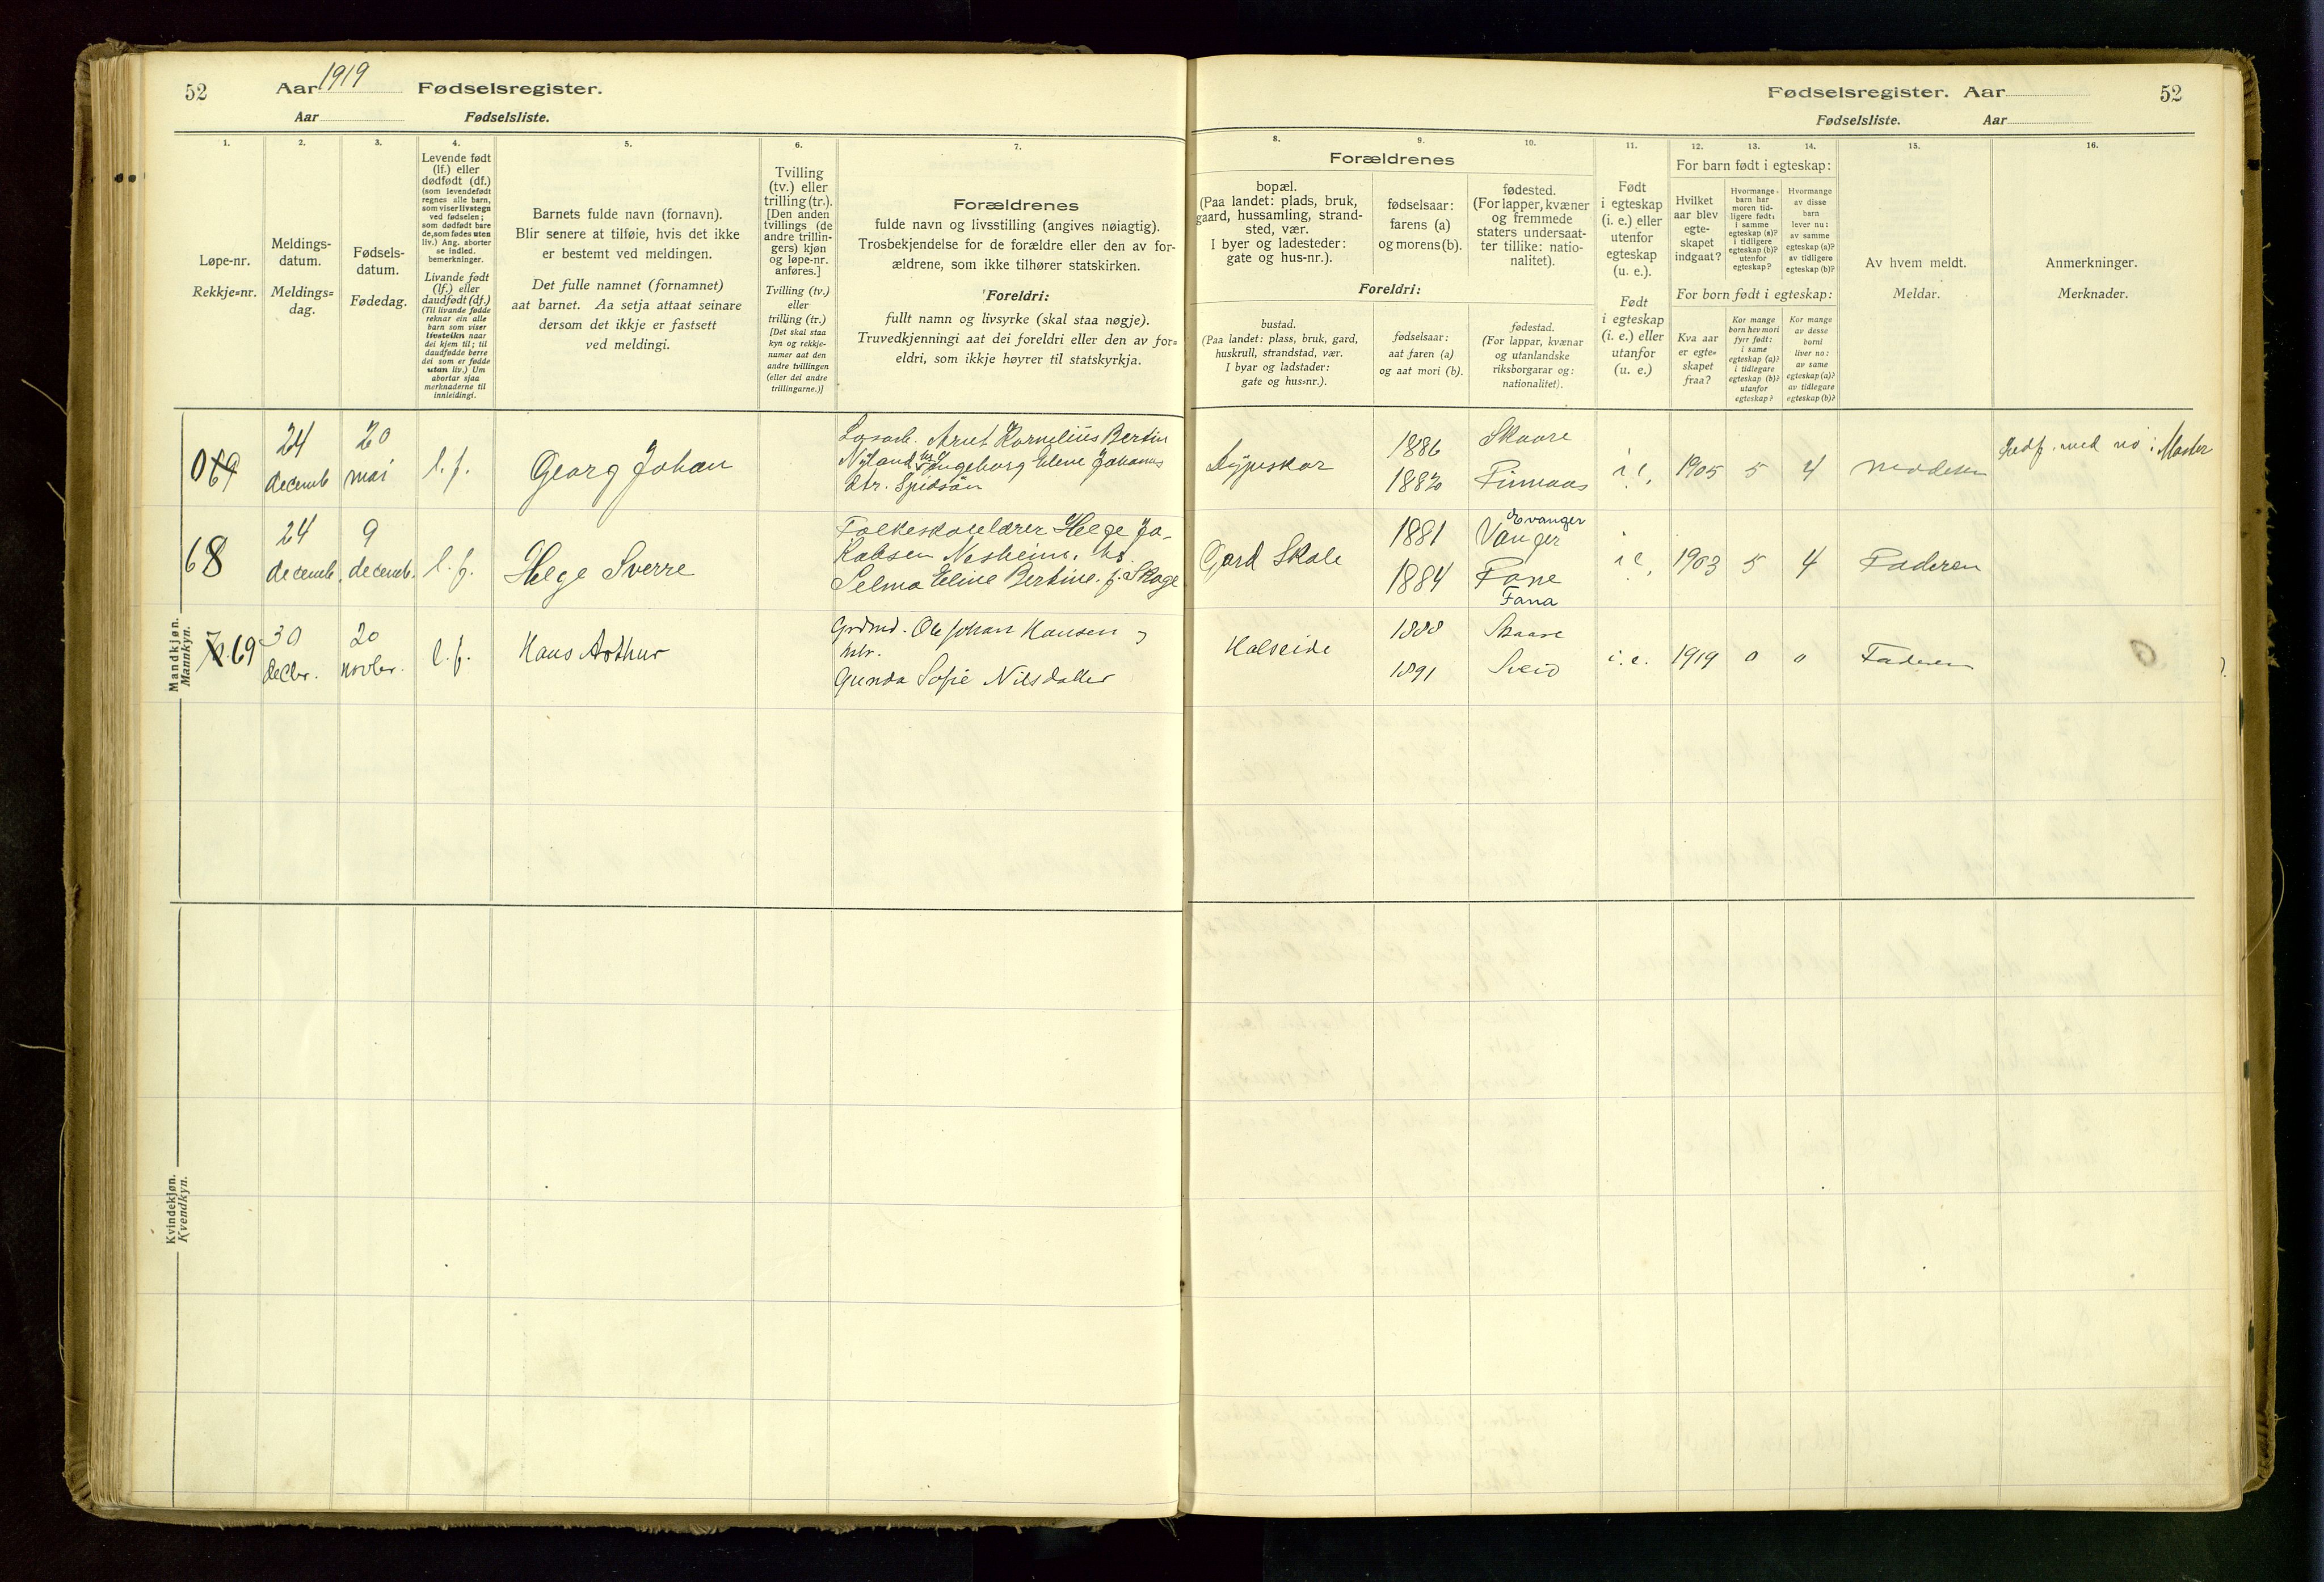 52
Aar 1919 Fødselsregister.
Aar Fødselsliste.
Fødselsregister. Aar
52
Fødselsliste. Aar
1.
Løpe-nr.
Rekkje=nr.
2.
Meldings-
datum.
Meldings=
dag.
3.
Fødsels-
datum.
Fødedag.
4.
Levende født
(lf.) eller
dødfødt (df.)
(som levendefødt
regnes alle barn,
som viser livstegn
ved fødselen;
som dødfødt bare
de, som fødes uten
liv.) Ang. aborter
se indled.
bemerkninger.
Livande født
(lf.) eller
daudfødt (df.)
(Til livande fødde
reknar ein alle
barn som viser
livsteikn naar
dei kjem til; til
daudfødde berre
dei som er fødde
utan liv.) Um
abortar sjaa
merknaderne til
innleidingi.
5.
Barnets fulde navn (fornavn).
Blir senere at tilføie, hvis det ikke
er bestemt ved meldingen.
Det fulle namnet (fornamnet)
aat barnet. Aa setja attaat seinare
dersom det ikkje er fastsett
ved meldingi.
6.
Tvilling
(tv.) eller
trilling (tr.).
[Den anden
tvillings (de
andre trillin-
gers) kjøn
og løpe-nr.
anføres.]
Tvilling (tv.)
eller
trilling (tr.)
[Det skal staa
kyn og rekkje-
numer aat den
andre tvillingen
(eller dei andre
trillingarne.)]
7.
Forældrenes
fulde navn og livsstilling (angives nøiagtig).
Trosbekjendelse for de forældre eller den av for-
ældrene, som ikke tilhører statskirken.
Foreldri:
fullt namn og livsyrke (skal staa nøgje).
Truvedkjenningi aat dei foreldri eller den av for=
eldri, som ikkje høyrer til statskyrkja.
8.
9.
10.
Forældrenes
bopæl.
(Paa landet: plads, bruk,
gaard, hussamling, strand-
sted, vær.
I byer og ladesteder:
gate og hus-nr.).
fødselsaar:
farens (a)
og morens (b).
fødested.
(For lapper, kvæner
og fremmede
staters undersaat-
ter tillike: natio-
nalitet).
Foreldri:
bustad.
(Paa landet: plass, bruk, gard,
huskrull, strandstad, vær.
I byar og ladstader:
gate og hus=nr.).
fødselsaar:
aat faren (a)
og aat mori (b).
fødestad.
(For lappar, kvænar
og utanlandske
riksborgarar og:
nationalitet).
11.
Født
i egteskap
(i. e.) eller
utenfor
egteskap
(u. e.).
Født
i egteskap
(i. e.) eller
utanfor
(u. e.)
12.
13.
14.
For barn født i egteskap:
Hvilket
aar blev
egte-
skapet
indgaat?
Hvormange
barn har
moren tid-
ligere født:
i samme
egteskap (a)?
i tidligere
egteskap (b)?
utenfor
egteskap?
Hvormange
av disse
barn
lever nu:
av samme
egteskap (a)?
av tidligere
egteskap (b)?
For born født i egteskap:
Kva aar
er egte=
skapet
fraa?
Kor mange
born hev mori
fyrr født:
i same
egteskap (a)?
i tidlegare
egteskap (b)?
utanfor
egteskap?
Kor mange
av desse
borni
liver no:
av same
egteskap (a)?
av tidlegare
egteskap (b)?
15.
Av hvem meldt.
Meldar.
16.
Anmerkninger.
Merknader.
Mandkjøn.
Mannkyn.
24 decemb 20 mai l. f. Georg Johan
Arnt Kornelius Bertin
Nyland Ingeborg Elene Johannes
dtr. Spidsøn
1886 Skaare
1882 Finnaas
i. e. 1905 5 4 moderen
68 24 decemb. 9 decemb. l. f. Helge Sverre
Folkeskolelærer Helge Ja-
kobsen Nesheim. hs
Selma Eline Bertine. f. Skage
Gard Skole
1881 Evanger Vanger
1884 Fane Fana
i. e. 1903 5 4 Faderen
69 30 decbr. 20 novbr. l. f. Hans Arthur
Grdmd. Ole Johan Hansen
hstr.
Gunda Sofie Nilsdatter
Halseide
1888 Skaare
1891 Sveio
i. e. 1919 0 0 Faderen
Kvindekjøn.
Kvendkyn.